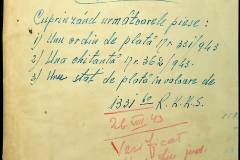 Cuprinzând următoarele piese:
1) Unu ordin de plată Nr. 331/943
2) Una chitanță Nr. 362/943.
3) Unu stat de plată în valoare de
1331 60 R.K.K.S.
26.VIII.43
Verificat